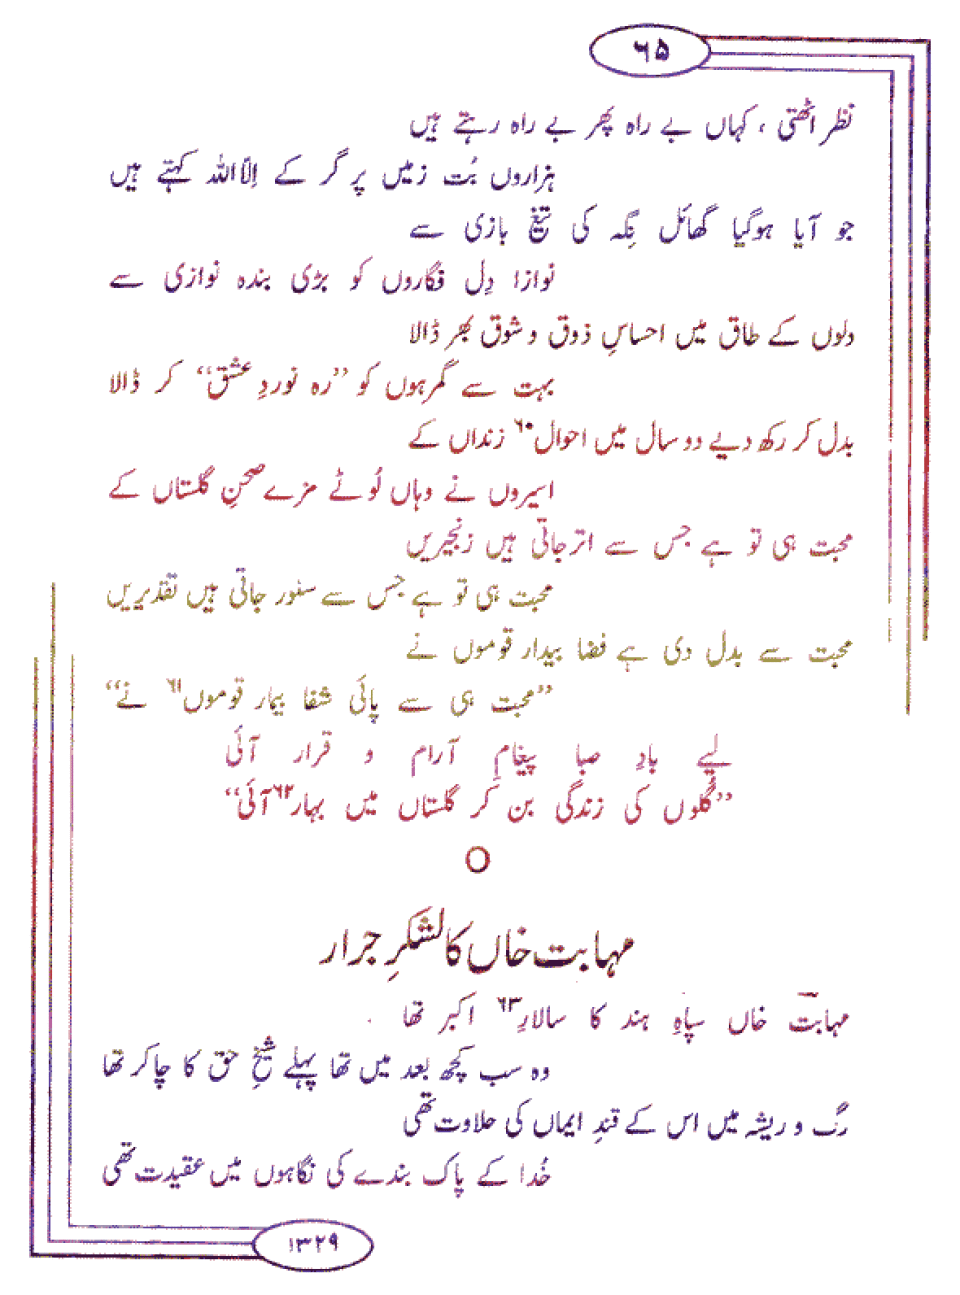 ۶۵
نظر اٹھتی ، کہاں بے راہ پھر بے راہ رہتے ہیں
ہزاروں بُت زمیں پر گر کے اِلّا اللہ کہتے ہیں
جو آیا ہوگیا گھائل نِگہ کی تیغ بازی سے
نوازا دِل فگاروں کو بڑی بندہ نوازی سے
دلوں کے طاق میں احساسِ ذوق و شوق بھر ڈالا
بہت سے گمرہوں کو ’’رہ نوردِ عشق‘‘ کر ڈالا
بدل کر رکھ دیے دو سال میں احوال۶۰ زنداں کے
اسیروں نے وہاں لُوٹے مزے صحنِ گلستاں کے
محبت ہی تو ہے جس سے اتر جاتی ہیں زنجیریں
محبت ہی تو ہے جس سے سنور جاتی ہیں تقدیریں
محبت سے بدل دی ہے فضا بیدار قوموں نے
’’محبت ہی سے پائی شفا بیمار قوموں۶۱ نے‘‘
لیے بادِ صبا پیغامِ آرام و قرار آئی
’’گلوں کی زندگی بن کر گلستاں میں بہار۶۲ آئی‘‘
O
مہابت خاں کا لشکرِ جرار
مہابت خاں سپاہِ ہند کا سالارِ۶۳ اکبر تھا
وہ سب کچھ بعد میں تھا پہلے شیخِ حق کا چاکر تھا
رگ و ریشہ میں اس کے قندِ ایماں کی حلاوت تھی
خُدا کے پاک بندے کی نگاہوں میں عقیدت تھی
۱۳۲۹